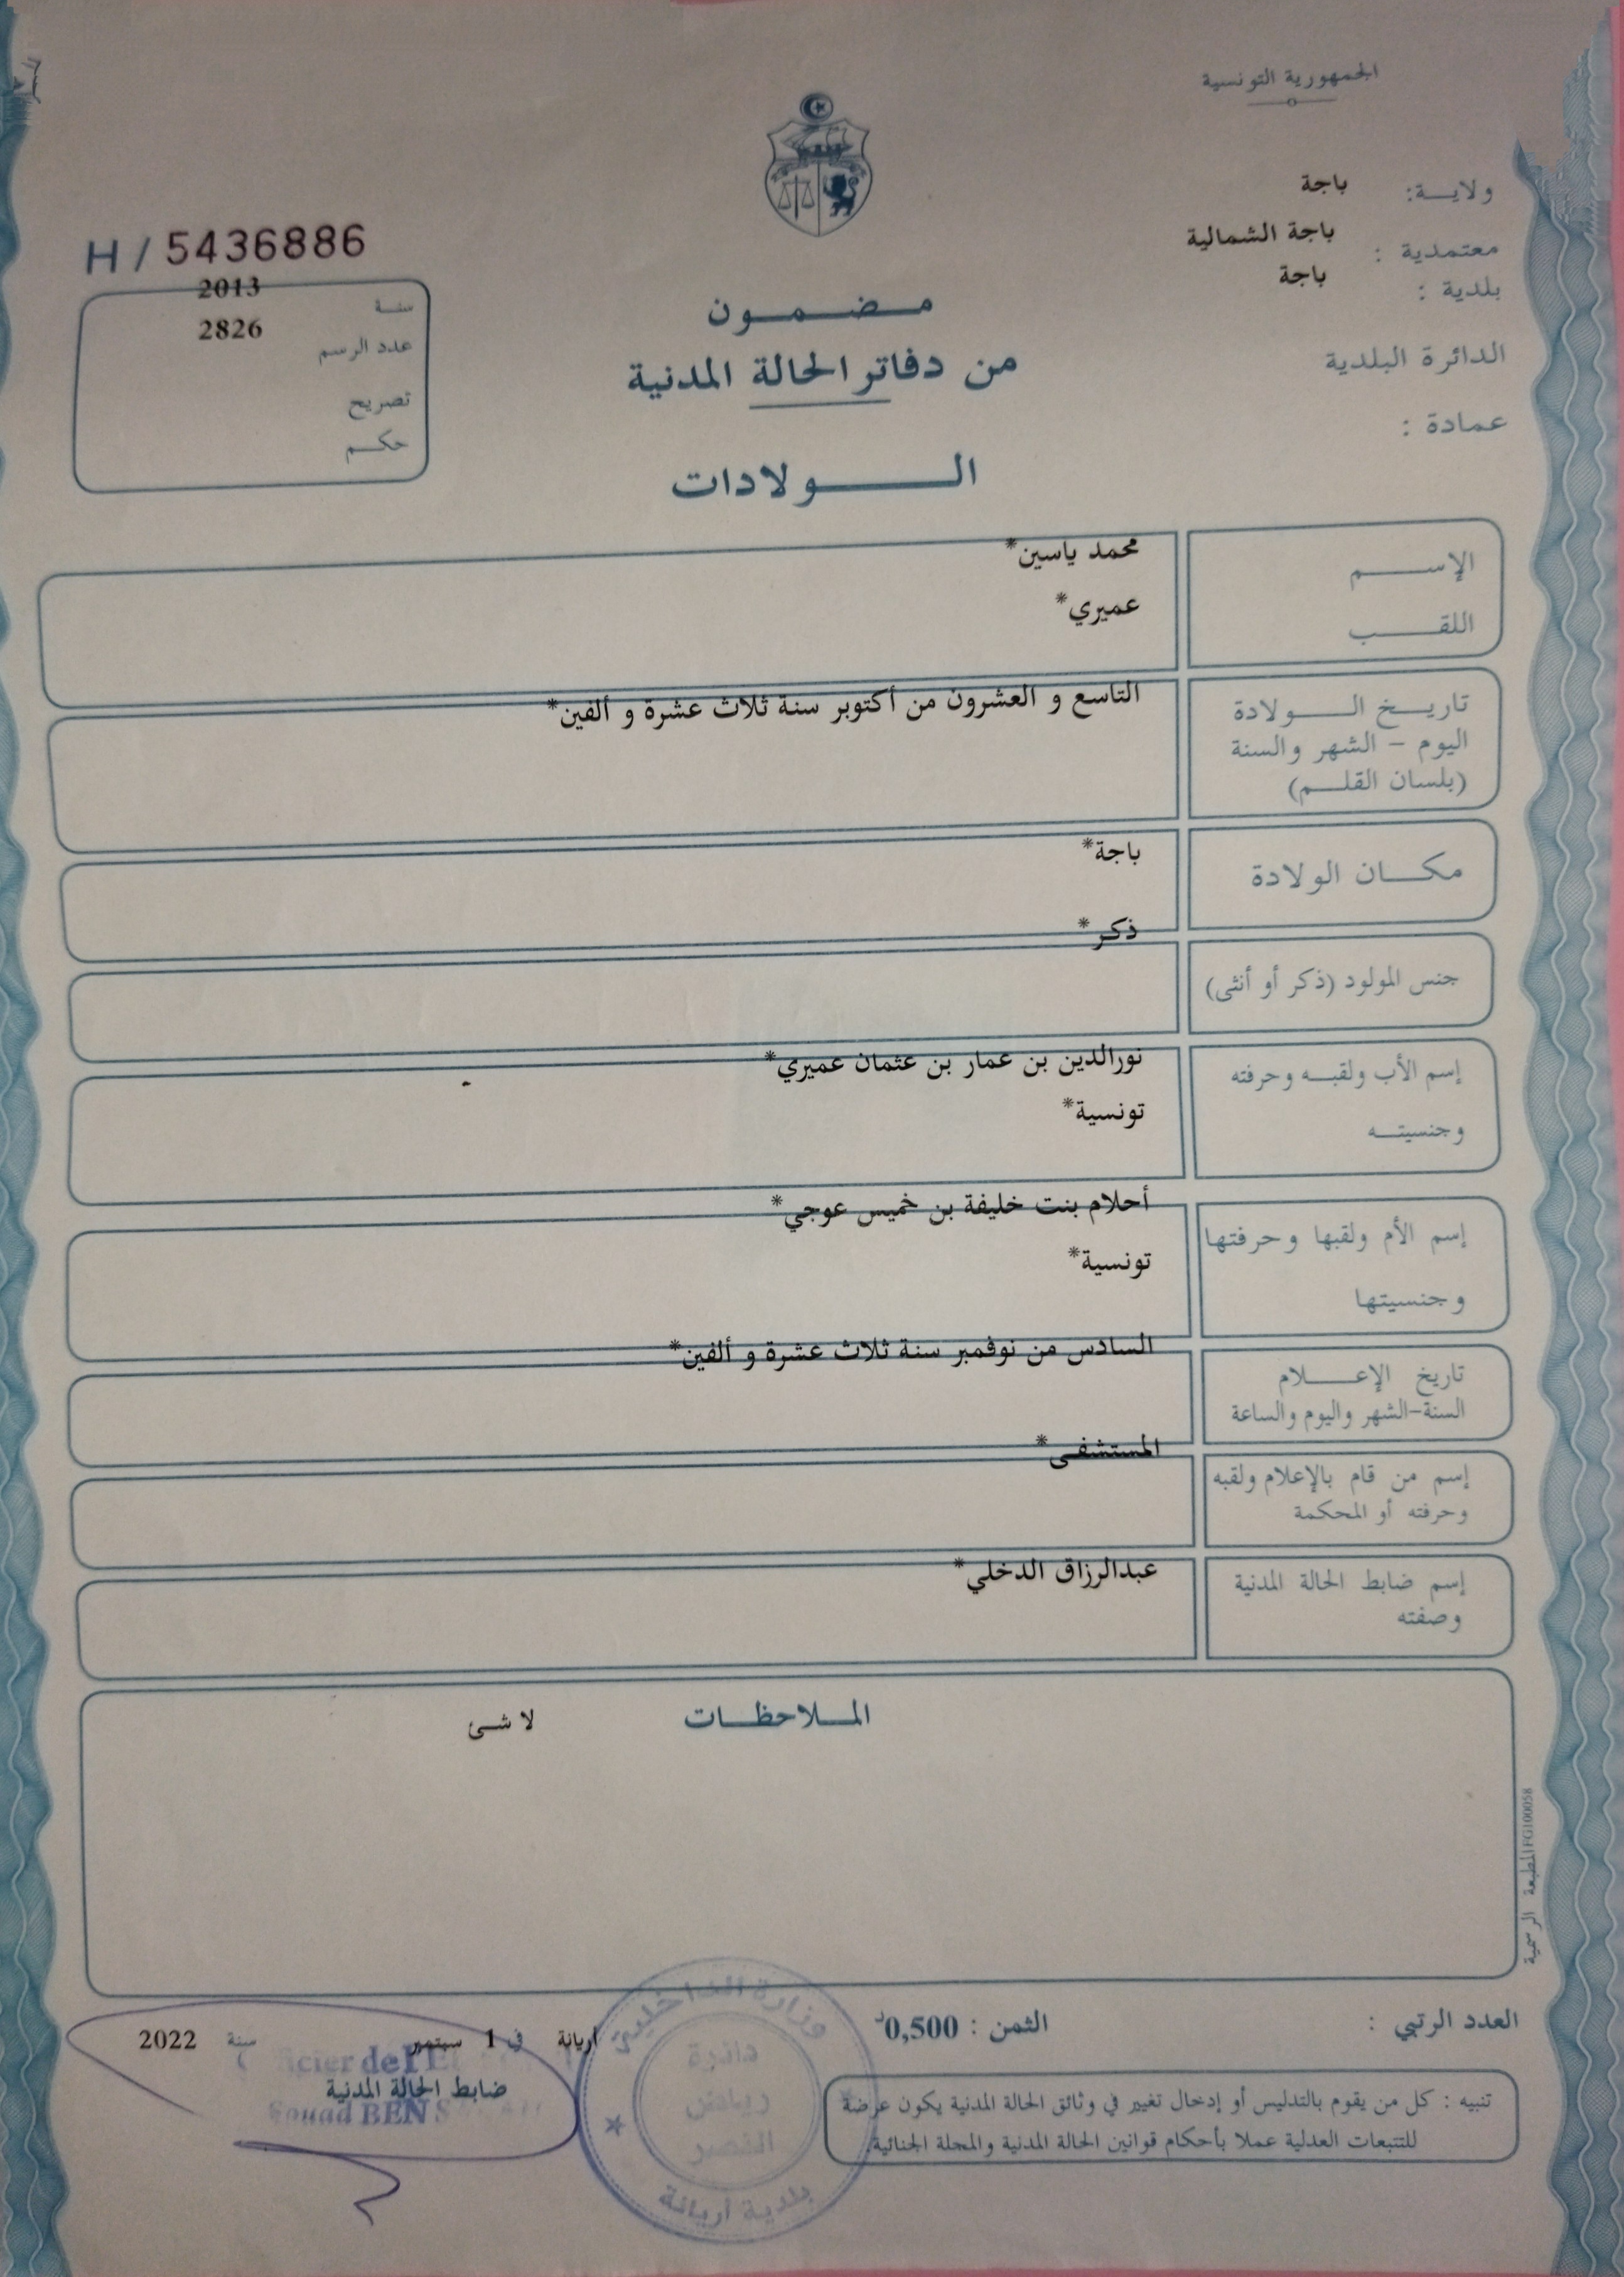 الجمهورية التونسية
ولاية: باجة
معتمدية : باجة الشمالية
بلدية : باجة
الدائرة البلدية
عمادة :
H / 5436886
سنة 2013
عدد الرسم 2826
تصريح
حكم
مضمون
من دفاتر الحالة المدنية
الولادات
الإسم محمد ياسين*
اللقب عميري*
تاريخ الولادة التاسع و العشرون من أكتوبر سنة ثلاث عشرة و ألفين*
اليوم - الشهر والسنة
(بلسان القلم)
مكان الولادة باجة*
ذكر*
جنس المولود (ذكر أو أنثى)
إسم الأب ولقبه وحرفته نورالدين بن عمار بن عثمان عميري*
وجنسيته تونسية*
إسم الأم ولقبها وحرفتها أحلام بنت خليفة بن خميس عوجي*
وجنسيتها تونسية*
تاريخ الإعلام السادس من نوفمبر سنة ثلاث عشرة و ألفين*
السنة-الشهر واليوم والساعة
المستشفى*
إسم من قام بالإعلام ولقبه
وحرفته أو المحكمة
إسم ضابط الحالة المدنية عبدالرزاق الدخلي*
وصفته
الملاحظات لا شئ
المطبعة الرسمية FG100058
العدد الرتبي :
الثمن : 0,500د
اريانة في 1 سبتمبر سنة 2022
de l'E
ضابط الحالة المدنية
Souad BEN
وزارة الداخلية
دائرة
رياض
النصر
بلدية أريانة
تنبيه : كل من يقوم بالتدليس أو إدخال تغيير في وثائق الحالة المدنية يكون عرضة
للتتبعات العدلية عملا بأحكام قوانين الحالة المدنية والمجلة الجنائية.